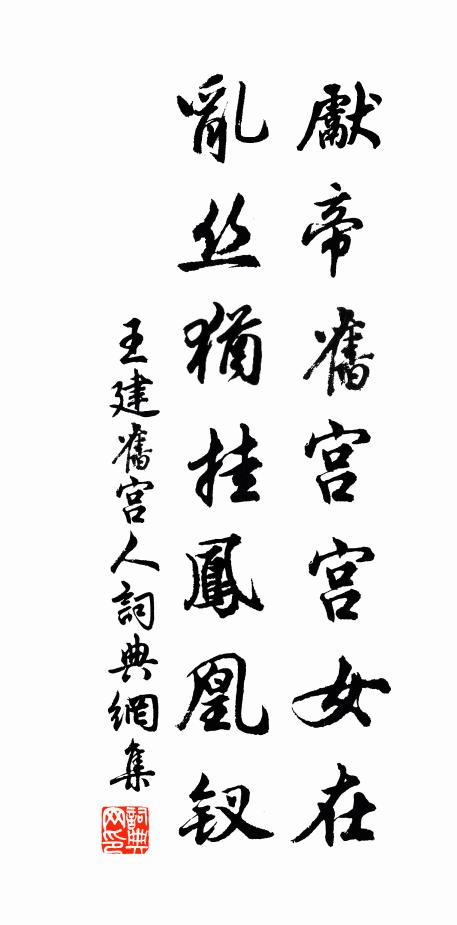 獻帝舊宫宫女在
亂丝猶挂鳳凰钗
王建舊宫人詞典網集
詞典网印